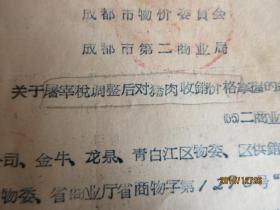 成都市物价委员会
成都市第二商业局
关于屠宰税调整后对猪肉收销价格掌握的
(65)二商业
司、金牛、龙泉、青白江区物委、区供销
物委、省商业厅省商物字第12